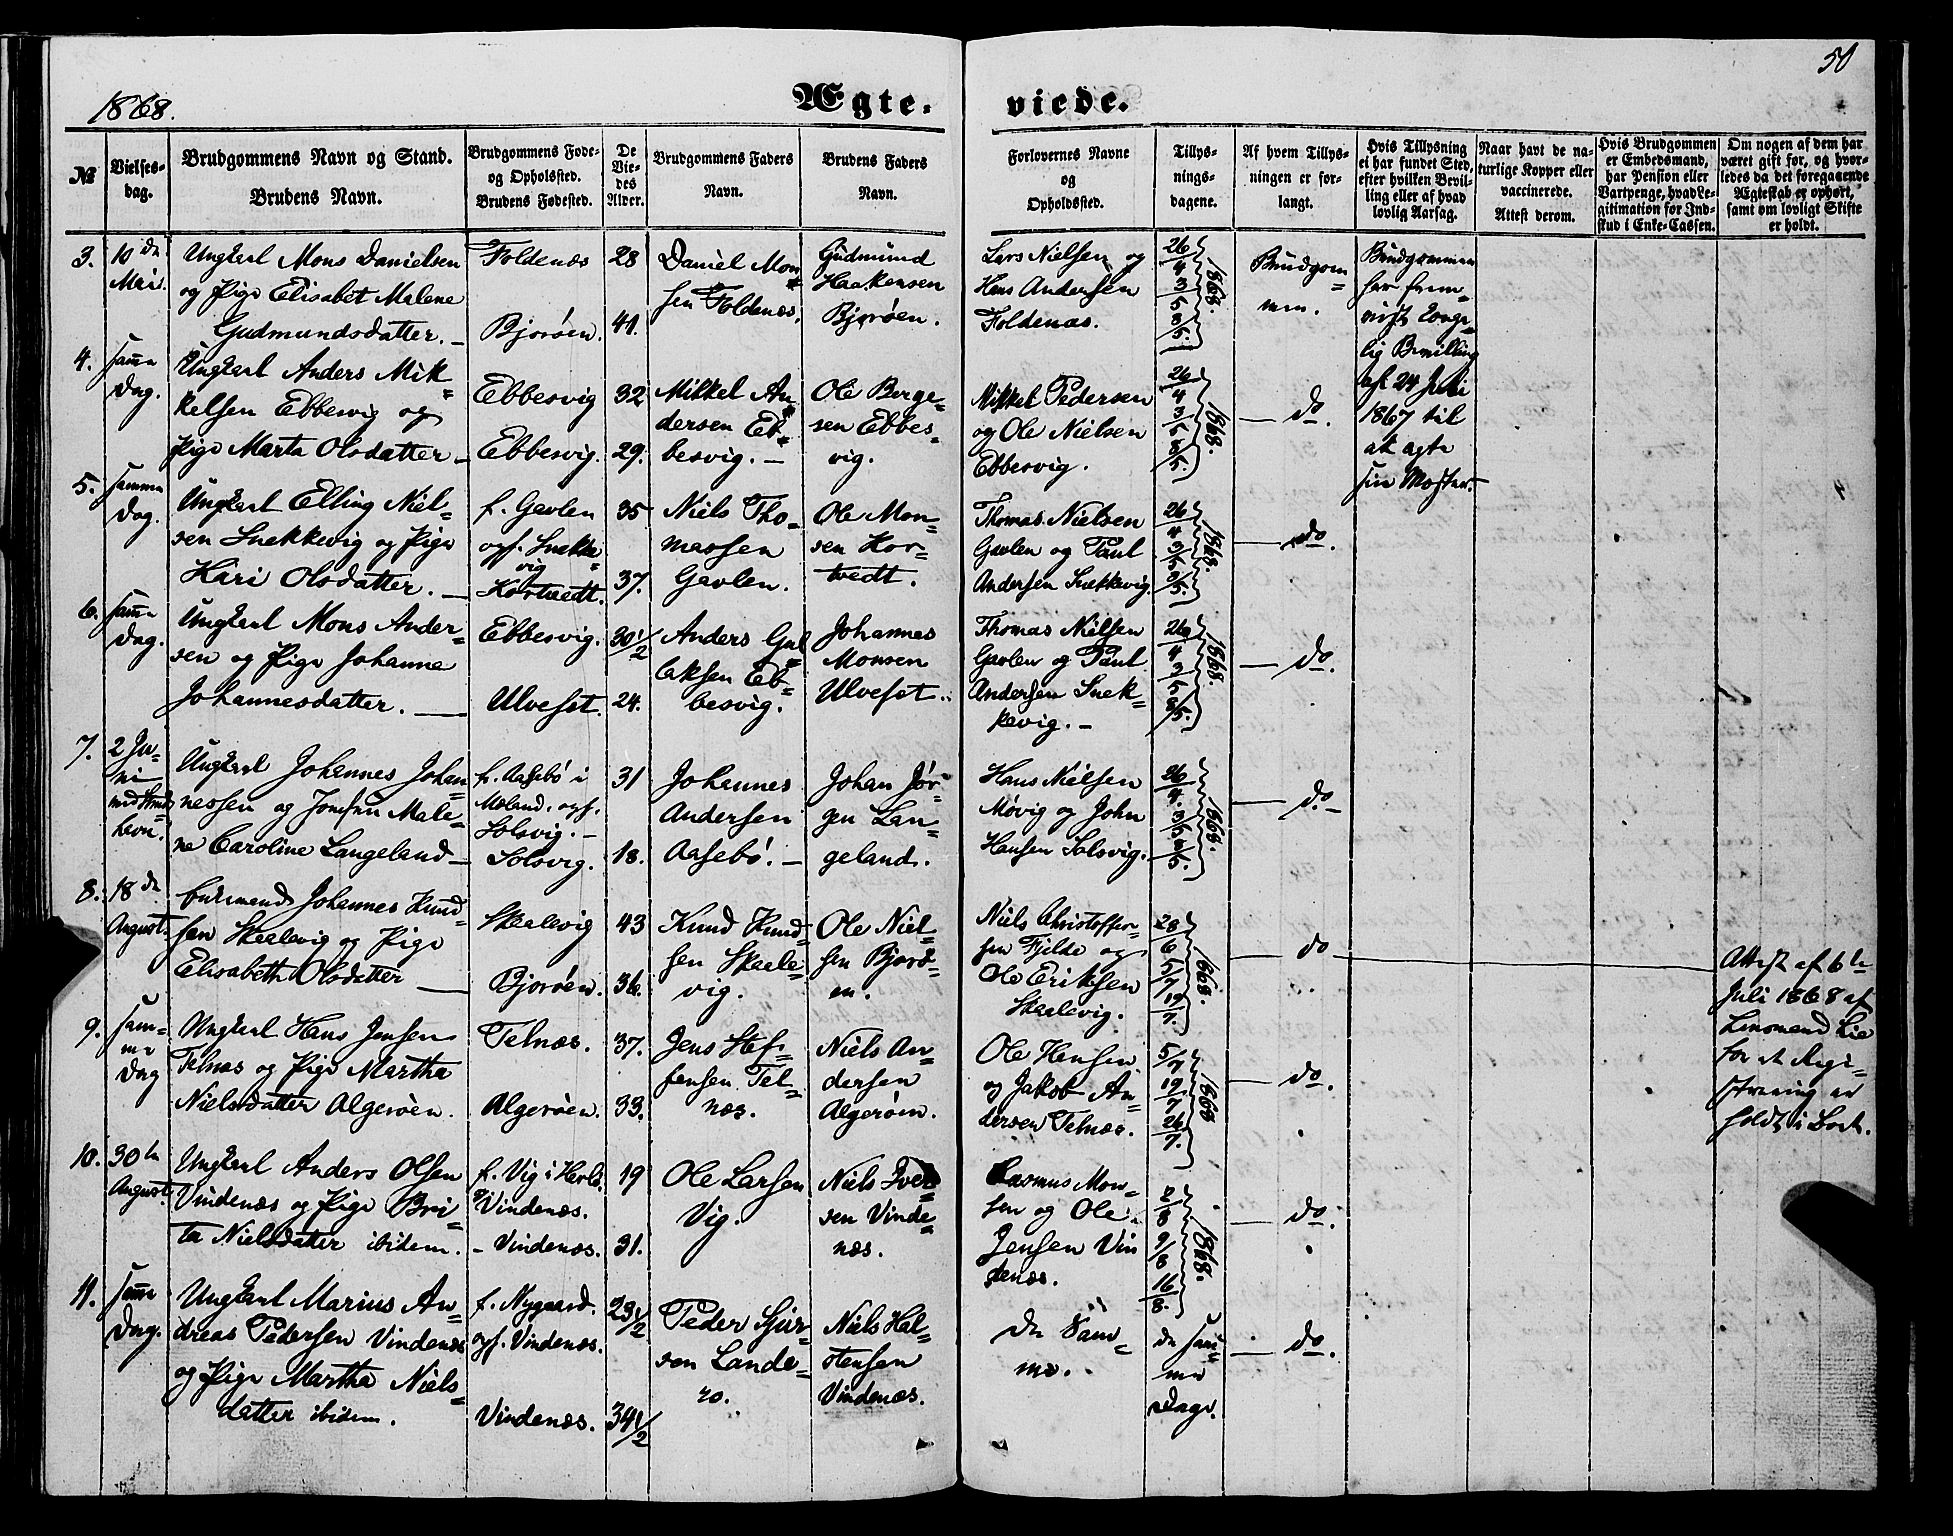 50
1868.
Ægte-
viede.
№
Vielses-
dag.
Brudgommens Navn og Stand.
Brudens Navn.
Brudgommens Føde-
og Opholdssted.
Brudens Fødested.
De
Vie-
des
Alder.
Brudgommens Faders
Navn.
Brudens Faders
Navn.
Forlovernes Navne
og
Opholdssted.
Tillys-
nings-
dagene.
Af hvem Tillys-
ningen er for-
langt.
Hvis Tillysning
ei har fundet Sted,
efter hvilken Bevil-
ling eller af hvad
lovlig Aarsag.
Naar havt de na-
turlige Kopper eller
vaccinerede.
Attest derom.
Hvis Brudgommen
er Embedsmand,
har Pension eller
Vartpenge, hvad Le-
gitimation for Ind-
skud i Enke-Cassen.
Om nogen af dem har
været gift før, og hvor-
ledes da det foregaaende
Ægteskab er ophørt,
samt om lovligt Skifte
er holdt.
3.
10de
Mai.
Ungkarl Mons Danielsen
og Pige Elisabet Malene
Gudmundsdatter. —
Foldenæs
Bjorøen.
28
41.
Daniel Mon=
sen Foldenæs.
Gudmund
Haakensen
Bjorøen.
Lars Nielsen og
Hans Andersen
Foldenæs.
26/4
3/5
3/5.
1868.
Brudgom=
men.
Brudgommen
har frem=
vist Konge=
lig Bevilling
af 24 Juli
1867 til
at ægte
sin Moster.
4.
samme
Dag.
Ungkarl Anders Mik=
kelsen Ebbesvig og
Pige Marta Olsdatter —
Ebbesvig
Ebbesvig.
32
29.
Mikkel An=
dersen Eb=
besvig. —
Ole Berge=
sen Ebbes=
vig.
Mikkel Pedersen
og Ole Nielsen
Ebbesvig.
26/4
3/5
3/5.
1868.
— do.
5.
samme
Dag.
Ungkarl Elling Niel=
sen Snekkevig og Pige
Kari Olsdatter. —
f. Gavlen
opf. Snekke=
vig
Kortvedt.
35
37.
Niels Tho=
massen
Gavlen.
Ole Mon=
sen Kor=
tvedt.
Thomas Nielsen
Gavlen og Paul
Andersen Snekkevig.
26/4
3/5
3/5.
1868.
— do.
6.
samme
Dag.
Ungkarl Mons Ander=
sen og Pige Johanne
Johannesdatter. —
Ebbesvig.
Ulveset.
30 1/2
24.
Anders Gul=
laksen Eb=
besvig.
Johannes
Monsen
Ulveset.
Thomas Nielsen
Gavlen og Paul
Andersen Snek=
kevig. —
26/4
3/5
3/5.
1868.
— do.
7.
2 Ju=
ni
Ungkarl Johannes Johan=
nessen og Jomfru Male=
ne Caroline Langeland —
f. Aasebø i
Mæland, opf.
Solsvig. —
Solsvig.
31
18.
Johannes
Andersen
Aasebø. —
Johan Jør=
gen Lan=
geland.
Hans Nielsen
Møvig og John
Hansen Solsvig.
26/4.
3/5
3/5.
1868.
— do. —
8.
18de
August.
Enkemand Johannes Knud=
sen Skaalevig og Pige
Elisabeth Olsdatter —
Skaalevig
Bjorøen.
43
36.
Knud Knud=
sen Skaale=
vig.
Ole Niel=
sen Bjorø=
en.
Niels Christoffer=
sen Fjelde og
Ole Eriksen
Skaalevig.
28/6
5/7
19/7.
1868.
— do
Attest af 6te
Juli 1868 af
Lensmand Lie
for at Regi=
strering er
holdt i Boet.
9.
sam=
me
Dag
Ungkarl Hans Jensen
Telnæs og Pige Martha
Nielsdatter Algerøen.
Telnæs.
Algerøen.
37.
33.
Jens Stef=
fensen Tel=
næs.
Niels An=
dersen
Algerøen.
Ole Hansen
og Jakob An=
dersen Telnæs.
5/7
19/7
26/7.
1868
— do.
10.
30te
August.
Ungkarl Anders Olsen
Vindenæs og Pige Bri=
ta Nielsdatter ibidem.
f. Vig i Herlø.
Vindenæs.
– Vindenæs.
19
31.
Ole Larsen
Vig.
Niels Iver=
sen Vinde=
næs.
Rasmus Mon=
sen og Ole
Jensen Vin
denæs.
2/8
9/8
16/8.
1868.
— do.
11.
samme
Dag.
Ungkarl Marius An=
dreas Pedersen Vindenæs
og Pige Martha Niels=
datter ibidem.
f. Nygaard.
opf. Vindenæs.
Vindenæs.
23 1/2
34 1/2
Peder Sjur=
sen Lande=
ro.
Niels Hal=
stensen
Vindenæs.
De Sam=
me.
de sam=
me
Dage.
— do.